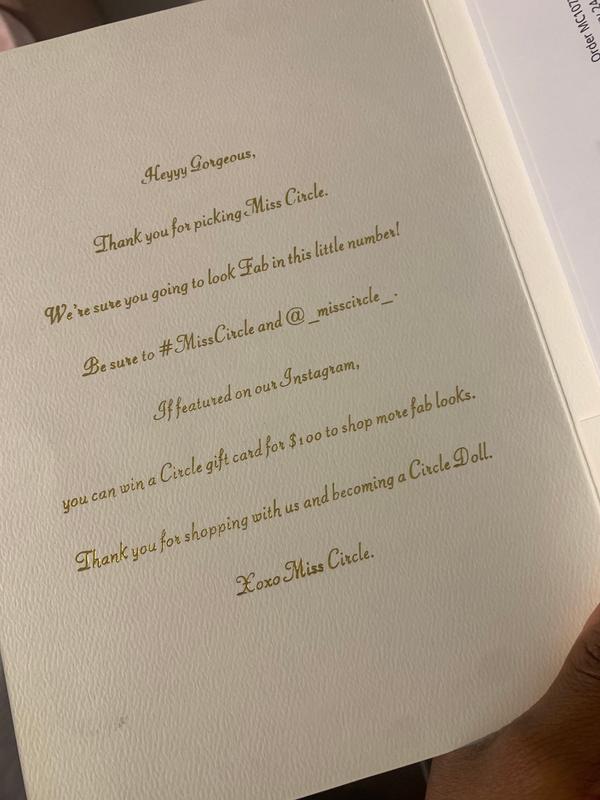 Heyyy Gorgeous,
Thank you for picking Miss Circle.
We're sure you going to look Fab in this little number!
Be sure to #MissCircle and @_misscircle_.
If featured on our Instagram,
you can win a Circle gift card for $100 to shop more fab looks.
Thank you for shopping with us and becoming a Circle Doll.
Xoxo Miss Circle.
Order